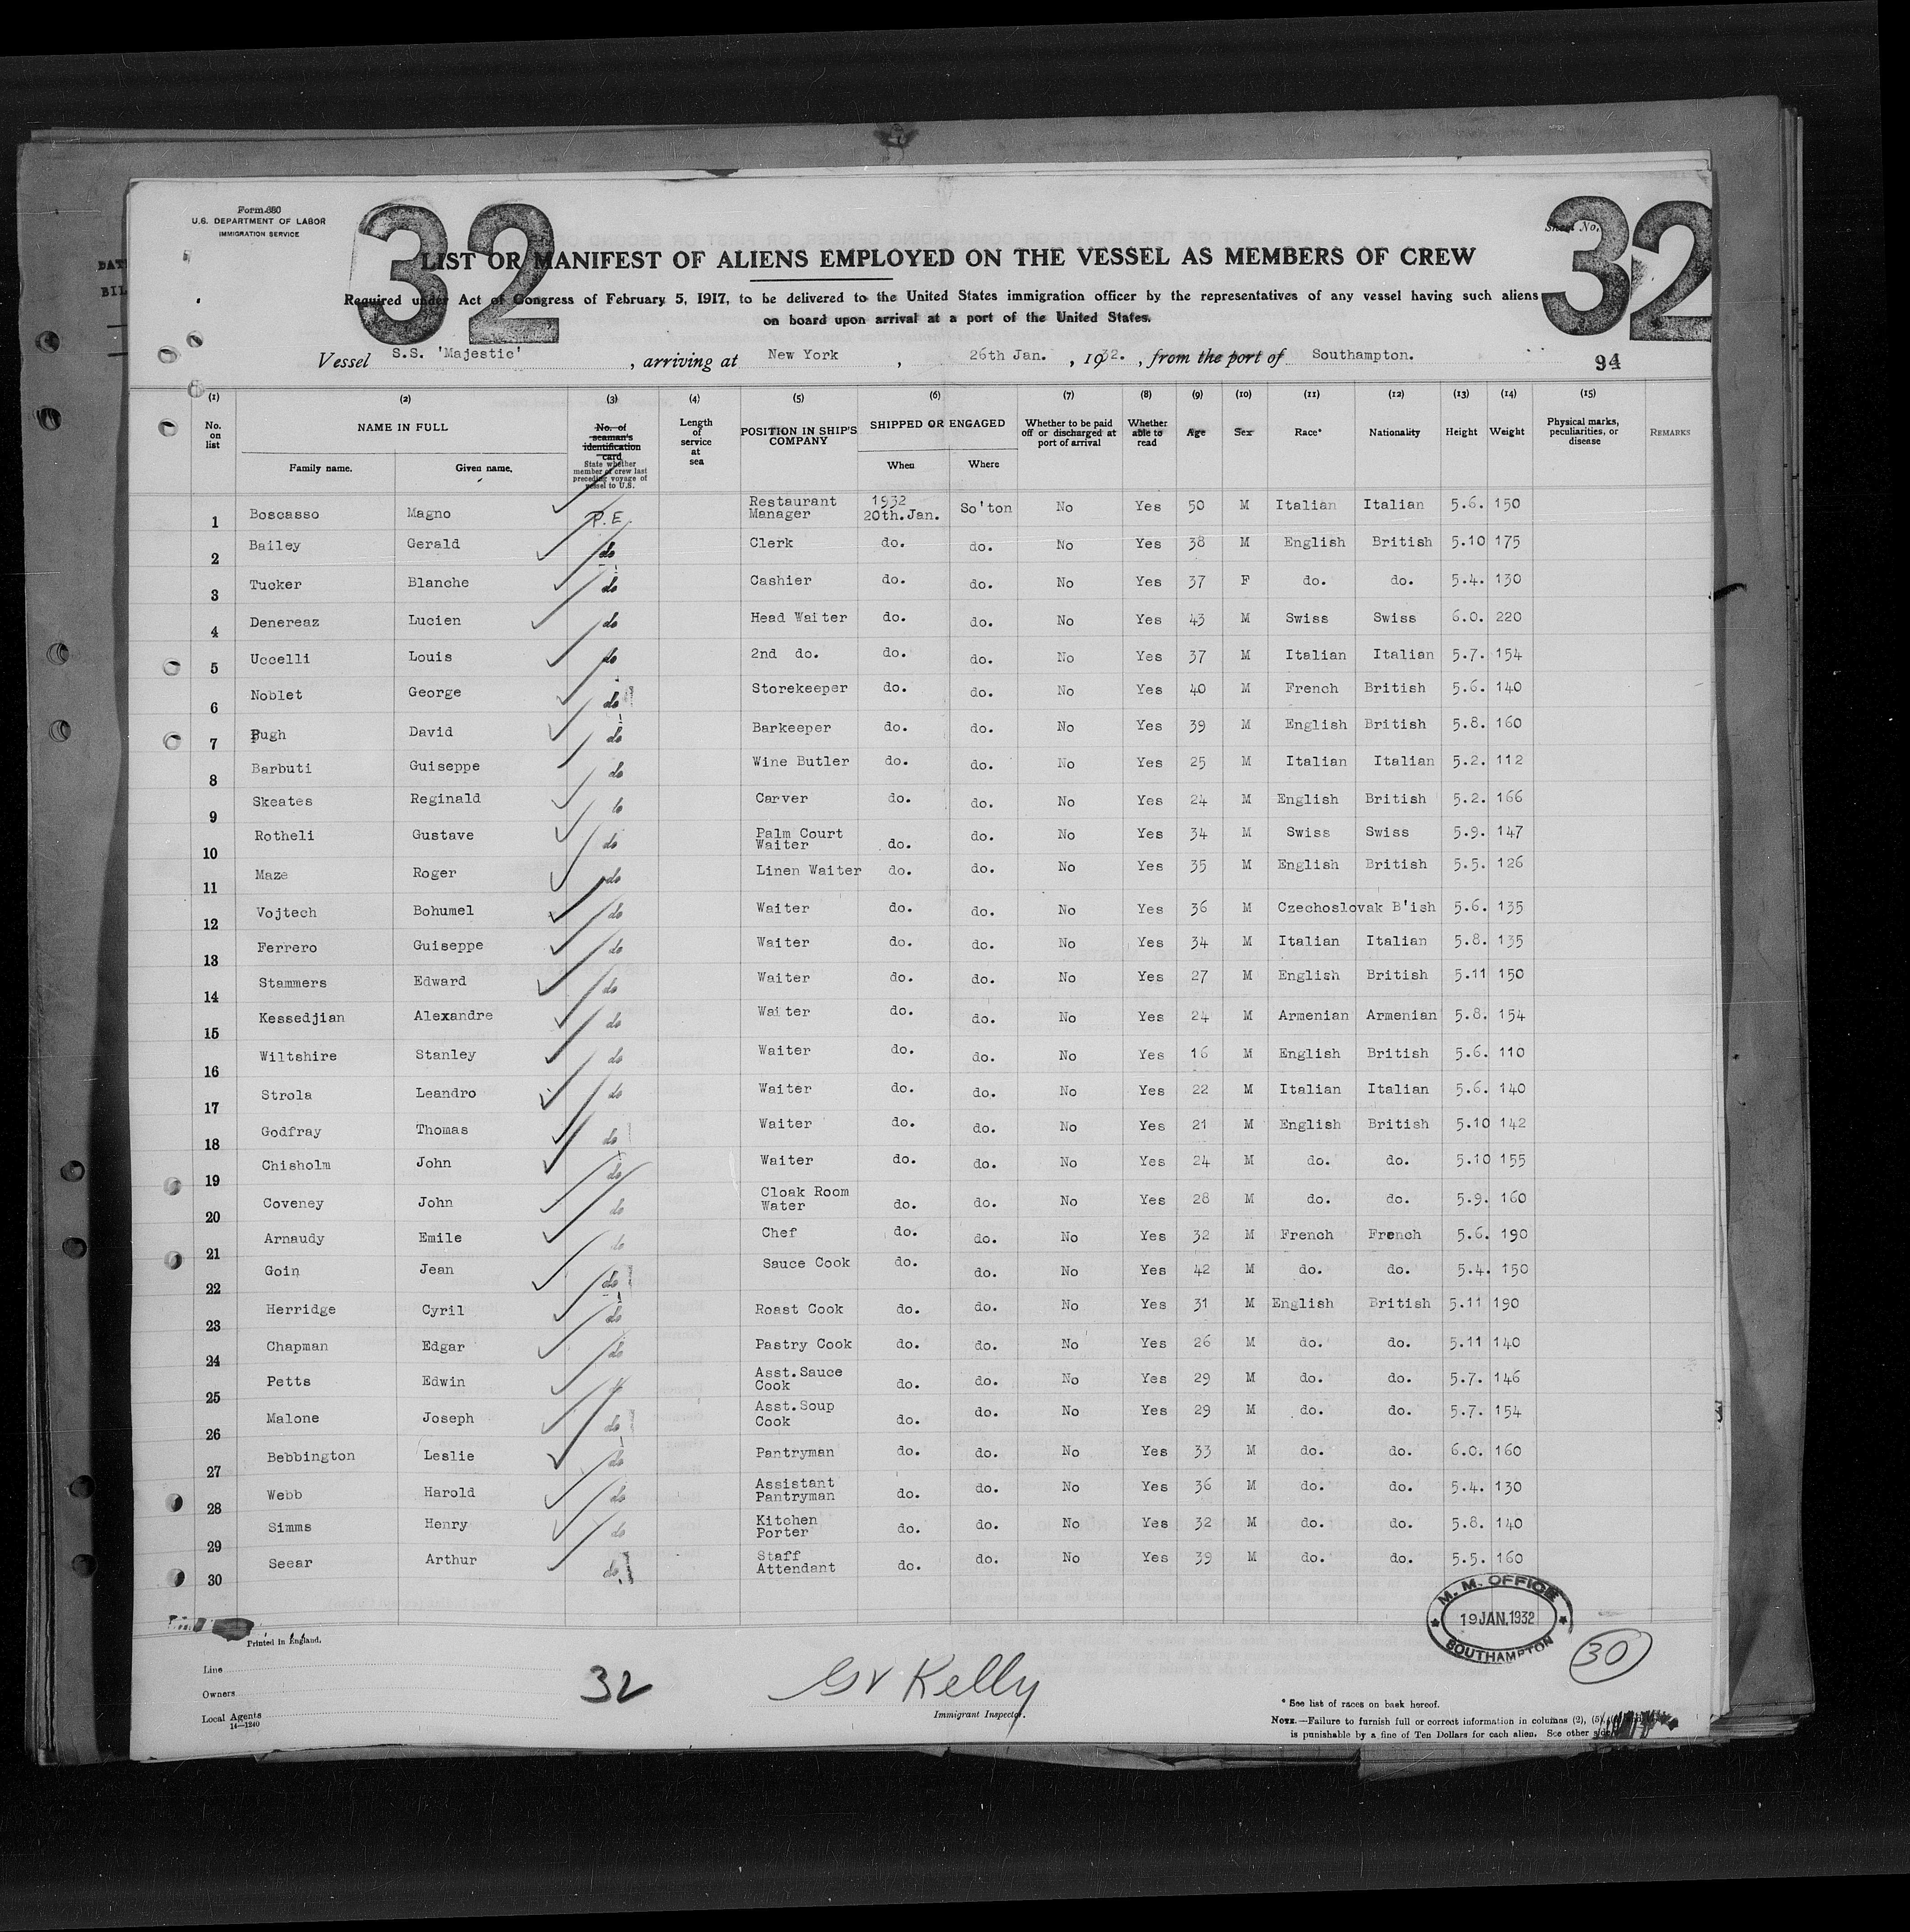 Form 680
U.S. DEPARTMENT OF LABOR
IMMIGRATION SERVICE
32
32
Sheet No.
LIST OR MANIFEST OF ALIENS EMPLOYED ON THE VESSEL AS MEMBERS OF CREW
Required under Act of Congress of February 5, 1917, to be delivered to the United States immigration officer by the representatives of any vessel having such aliens
on board upon arrival at a port of the United States.
Vessel S.S. 'Majestic' , arriving at New York , 26th Jan. , 1932. , from the port of Southampton.
94
(1) (2) (3) (4) (5) (6) (7) (8) (9) (10) (11) (12) (13) (14) (15)
No. on list NAME IN FULL Family name. Given name. No. of seaman's identification card State whether member of crew last preceding voyage of vessel to U.S. Length of service at sea POSITION IN SHIP'S COMPANY SHIPPED OR ENGAGED When Where Whether to be paid off or discharged at port of arrival Whether able to read Age Sex Race* Nationality Height Weight Physical marks, peculiarities, or disease REMARKS
1 Boscasso Magno P.E. Restaurant Manager 1932 20th.Jan. So'ton No Yes 50 M Italian Italian 5.6. 150
2 Bailey Gerald do Clerk do. do. No Yes 38 M English British 5.10 175
3 Tucker Blanche do Cashier do. do. No Yes 37 F do. do. 5.4. 130
4 Denereaz Lucien do Head Waiter do. do. No Yes 43 M Swiss Swiss 6.0. 220
5 Uccelli Louis do 2nd do. do. do. No Yes 37 M Italian Italian 5.7. 154
6 Noblet George do Storekeeper do. do. No Yes 40 M French British 5.6. 140
7 Pugh David do Barkeeper do. do. No Yes 39 M English British 5.8. 160
8 Barbuti Guiseppe do Wine Butler do. do. No Yes 25 M Italian Italian 5.2. 112
9 Skeates Reginald do Carver do. do. No Yes 24 M English British 5.2. 166
10 Rotheli Gustave do Palm Court Waiter do. do. No Yes 34 M Swiss Swiss 5.9. 147
11 Maze Roger do Linen Waiter do. do. No Yes 35 M English British 5.5. 126
12 Vojtech Bohumel do Waiter do. do. No Yes 36 M Czechoslovak B'ish 5.6. 135
13 Ferrero Guiseppe do Waiter do. do. No Yes 34 M Italian Italian 5.8. 135
14 Stammers Edward do Waiter do. do. No Yes 27 M English British 5.11 150
15 Kessedjian Alexandre do Waiter do. do. No Yes 24 M Armenian Armenian 5.8. 154
16 Wiltshire Stanley do Waiter do. do. No Yes 16 M English British 5.6. 110
17 Strola Leandro do Waiter do. do. No Yes 22 M Italian Italian 5.6. 140
18 Godfray Thomas do Waiter do. do. No Yes 21 M English British 5.10 142
19 Chisholm John do Waiter do. do. No Yes 24 M do. do. 5.10 155
20 Coveney John do Cloak Room Water do. do. No Yes 28 M do. do. 5.9. 160
21 Arnaudy Emile do Chef do. do. No Yes 32 M French French 5.6. 190
22 Goin Jean do Sauce Cook do. do. No Yes 42 M do. do. 5.4. 150
23 Herridge Cyril do Roast Cook do. do. No Yes 31 M English British 5.11 190
24 Chapman Edgar do Pastry Cook do. do. No Yes 26 M do. do. 5.11 140
25 Petts Edwin Asst.Sauce Cook do. do. No Yes 29 M do. do. 5.7. 146
26 Malone Joseph do Asst.Soup Cook do. do. No Yes 29 M do. do. 5.7. 154
27 Bebbington Leslie do Pantryman do. do. No Yes 33 M do. do. 6.0. 160
28 Webb Harold do Assistant Pantryman do. do. No Yes 36 M do. do. 5.4. 130
29 Simms Henry do Kitchen Porter do. do. No Yes 32 M do. do. 5.8. 140
30 Seear Arthur do Staff Attendant do. do. No Yes 39 M do. do. 5.5. 160
M. M. OFFICE
19 JAN. 1932
SOUTHAMPTON
30
Printed in England.
Line
Owners
Local Agents
14—1240
32
Kelly
Immigrant Inspector.
* See list of races on back hereof.
NOTE.—Failure to furnish full or correct information in columns (2), (5),
is punishable by a fine of Ten Dollars for each alien. See other side